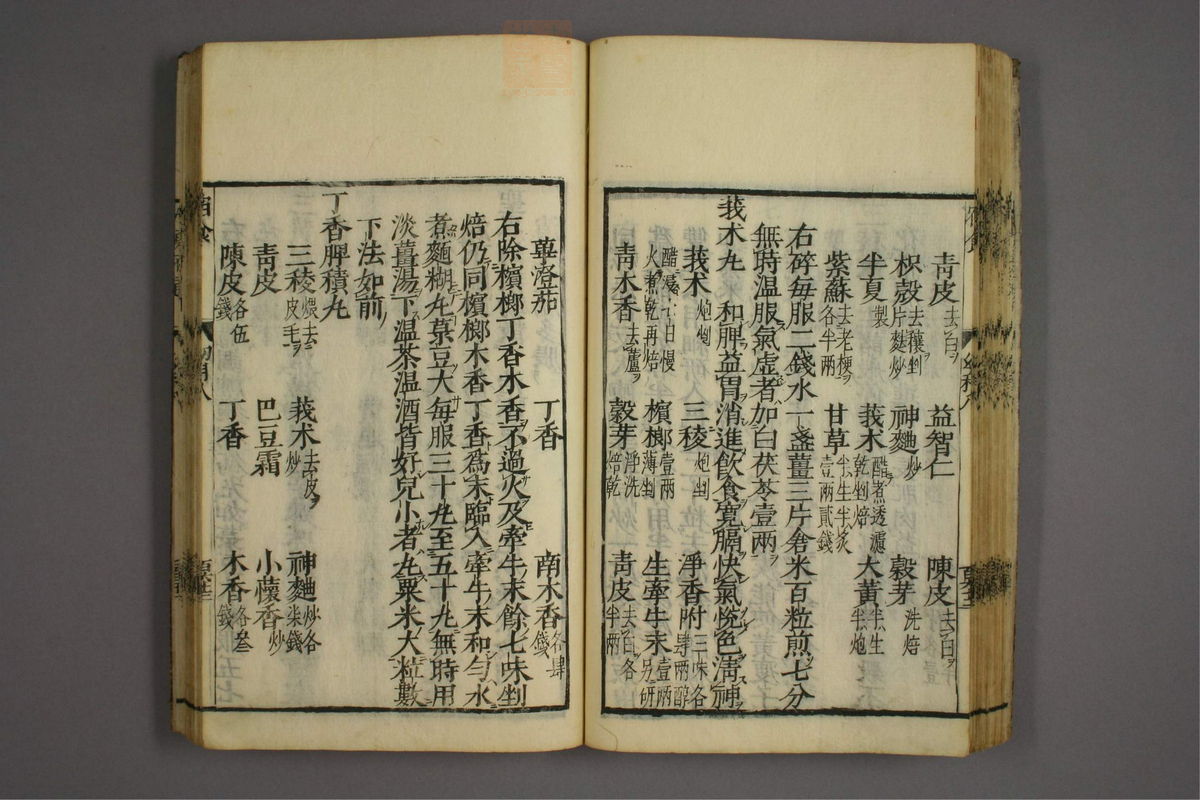 青皮去白 益智仁 陳皮去白
枳殼去穰剉片麩炒 神麯炒 穀芽洗焙
半夏製 莪术醋煮透濾乾剉焙 大黃半生半炮
紫蘇去老梗各半兩 甘草半生半炙壹兩貳錢
右碎每服二錢水一盞薑三片倉米百粒煎七分
無時温服氣虚者加白茯苓壹兩
莪术丸 和脾益胃消進飲食寬膈快氣悦色清神
莪术炮剉 三稜炮剉 淨香附三味各肆兩醇
醋浸七日慢火煮乾再焙 檳榔壹兩薄剉 生牽牛末壹兩另研
青木香去蘆 穀芽淨洗焙乾 青皮去白各半兩
蓽澄茄 丁香 南木香各肆錢
右除檳榔丁香木香不過火及牽牛末餘七味剉
焙仍同檳榔木香丁香爲末臨入牽牛末和勻水
煮麵糊丸菉豆大每服三十丸至五十丸無時用
淡薑湯下温茶温酒皆好兒小者丸粟米大糕數
下法如前
丁香脾積丸
三稜煨去皮毛 莪术去皮炒 神麯炒各柒錢
青皮 巴豆霜 小蘹香炒
陳皮各伍錢 丁香 木香各叁錢